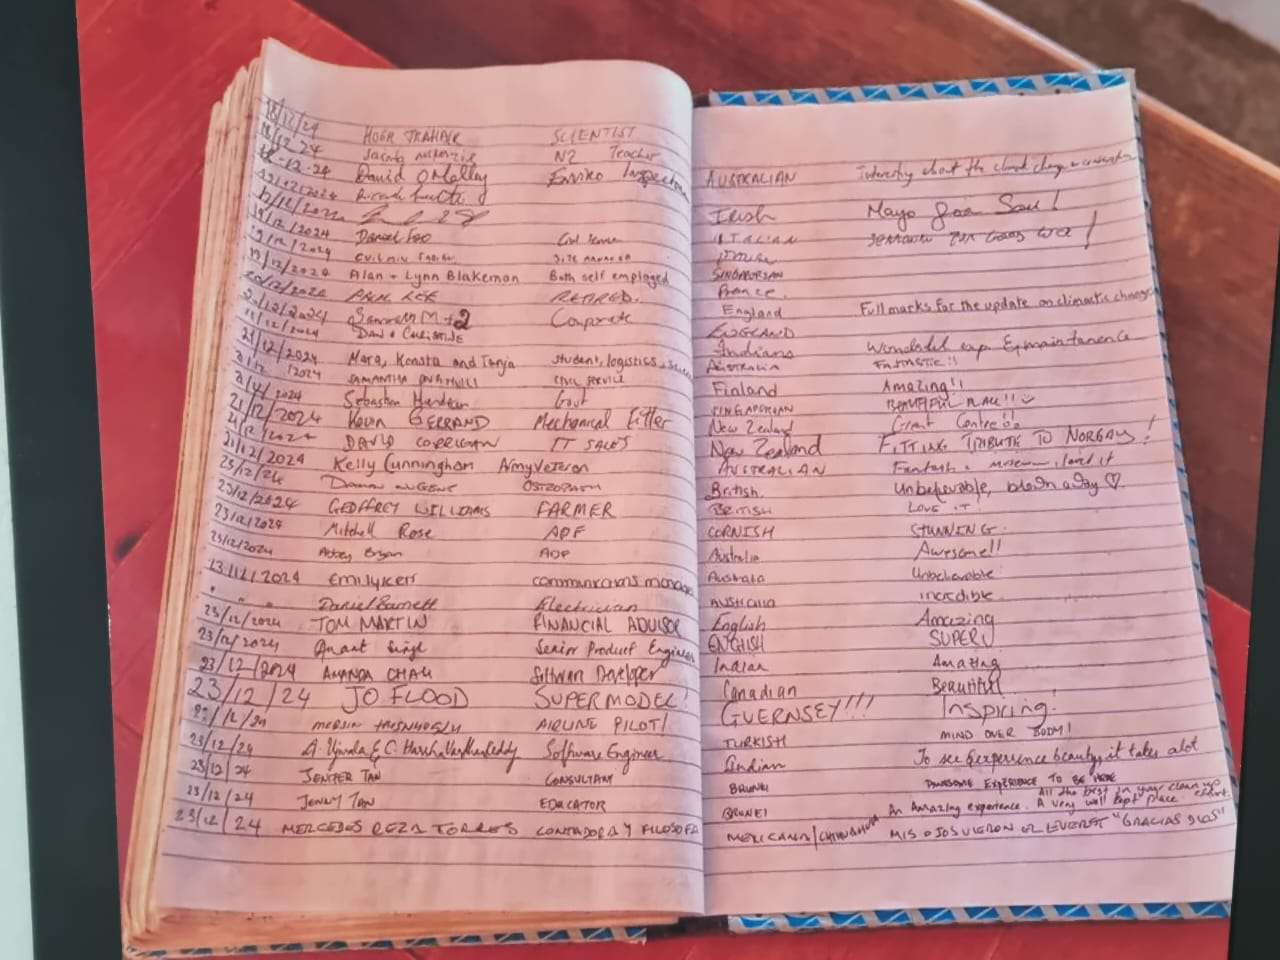 18/12/24 SCIENTIST
18/12/24 NZ Teacher AUSTRALIAN about the climate change
18-12-24 David O'Malley Enviro Irish Mayo for Sam!
19/12/2024 ITALIAN
19/12/2024
19/12/2024 Daniel Foo SINGAPOREAN
19/12/2024 SITE MANAGER France
19/12/2024 Alan + Lynn Blakeman Both self employed England Full marks for the update on climatic changes
20/12/2024 PAUL LEE RETIRED. ENGLAND
20/12/2024 M +2 Corporate Indians Wonderful exp & maintanence
DAN & CHRISTINE AUSTRALIA FANTASTIC!!
21/12/2024 Mara, Konsta and Tanja student, logistics, Finland Amazing!!
2024 SAMANTHA CIVIL SERVICE SINGAPOREAN BEAUTIFUL PLACE!!
2024 Sebastian Govt New Zealand Great Centre!!
21/12/2024 Kevin GERRAND Mechanical Fitter New Zealand FITTING TRIBUTE TO NORGAY!
21/12/2024 DAVID CORRIGAN IT SALES AUSTRALIAN museum, loved it
21/12/2024 Kelly Cunningham Army Veteran British. Unbelievable, blown away ♡.
23/12/24 OSTEOPATH BRITISH LOVE IT.
23/12/2024 GEOFFREY WILLIAMS FARMER CORNISH STUNNING.
23/12/2024 Mitchell Rose ADF Australia Awesome!!
23/12/2024 Abbey Bryan ADF Australia Unbelievable
23/12/2024 Emily Kerr communications manager Australia incredible.
" " " Daniel Barnett Electrician English Amazing
23/12/2024 TOM MARTIN FINANCIAL ADVISOR ENGLISH SUPER
23/12/2024 Anant Singh Senior Product Engineer Indian Amazing
23/12/2024 AMANDA CHAN Software Developer Canadian Beautiful
23/12/24 JO FLOOD SUPERMODEL! GUERNSEY!!! Inspiring.
AIRLINE PILOT! TURKISH MIND OVER BODY!
23/12/24 Software Engineer Indian To see & experience beauty, it takes alot
23/12/24 JENIFER TAN CONSULTANT BRUNEI EXPERIENCE TO BE HERE
All the best in your clean up effort.
23/12/24 JENNY TAN EDUCATOR BRUNEI An Amazing experience. A very well kept place.
23/12/24 MERCEDES REZA TORRES CONTADORA Y FILOSOFA MEXICANA/CHIHUAHUA MIS OJOS VIERON EL EVEREST "GRACIAS DIOS"